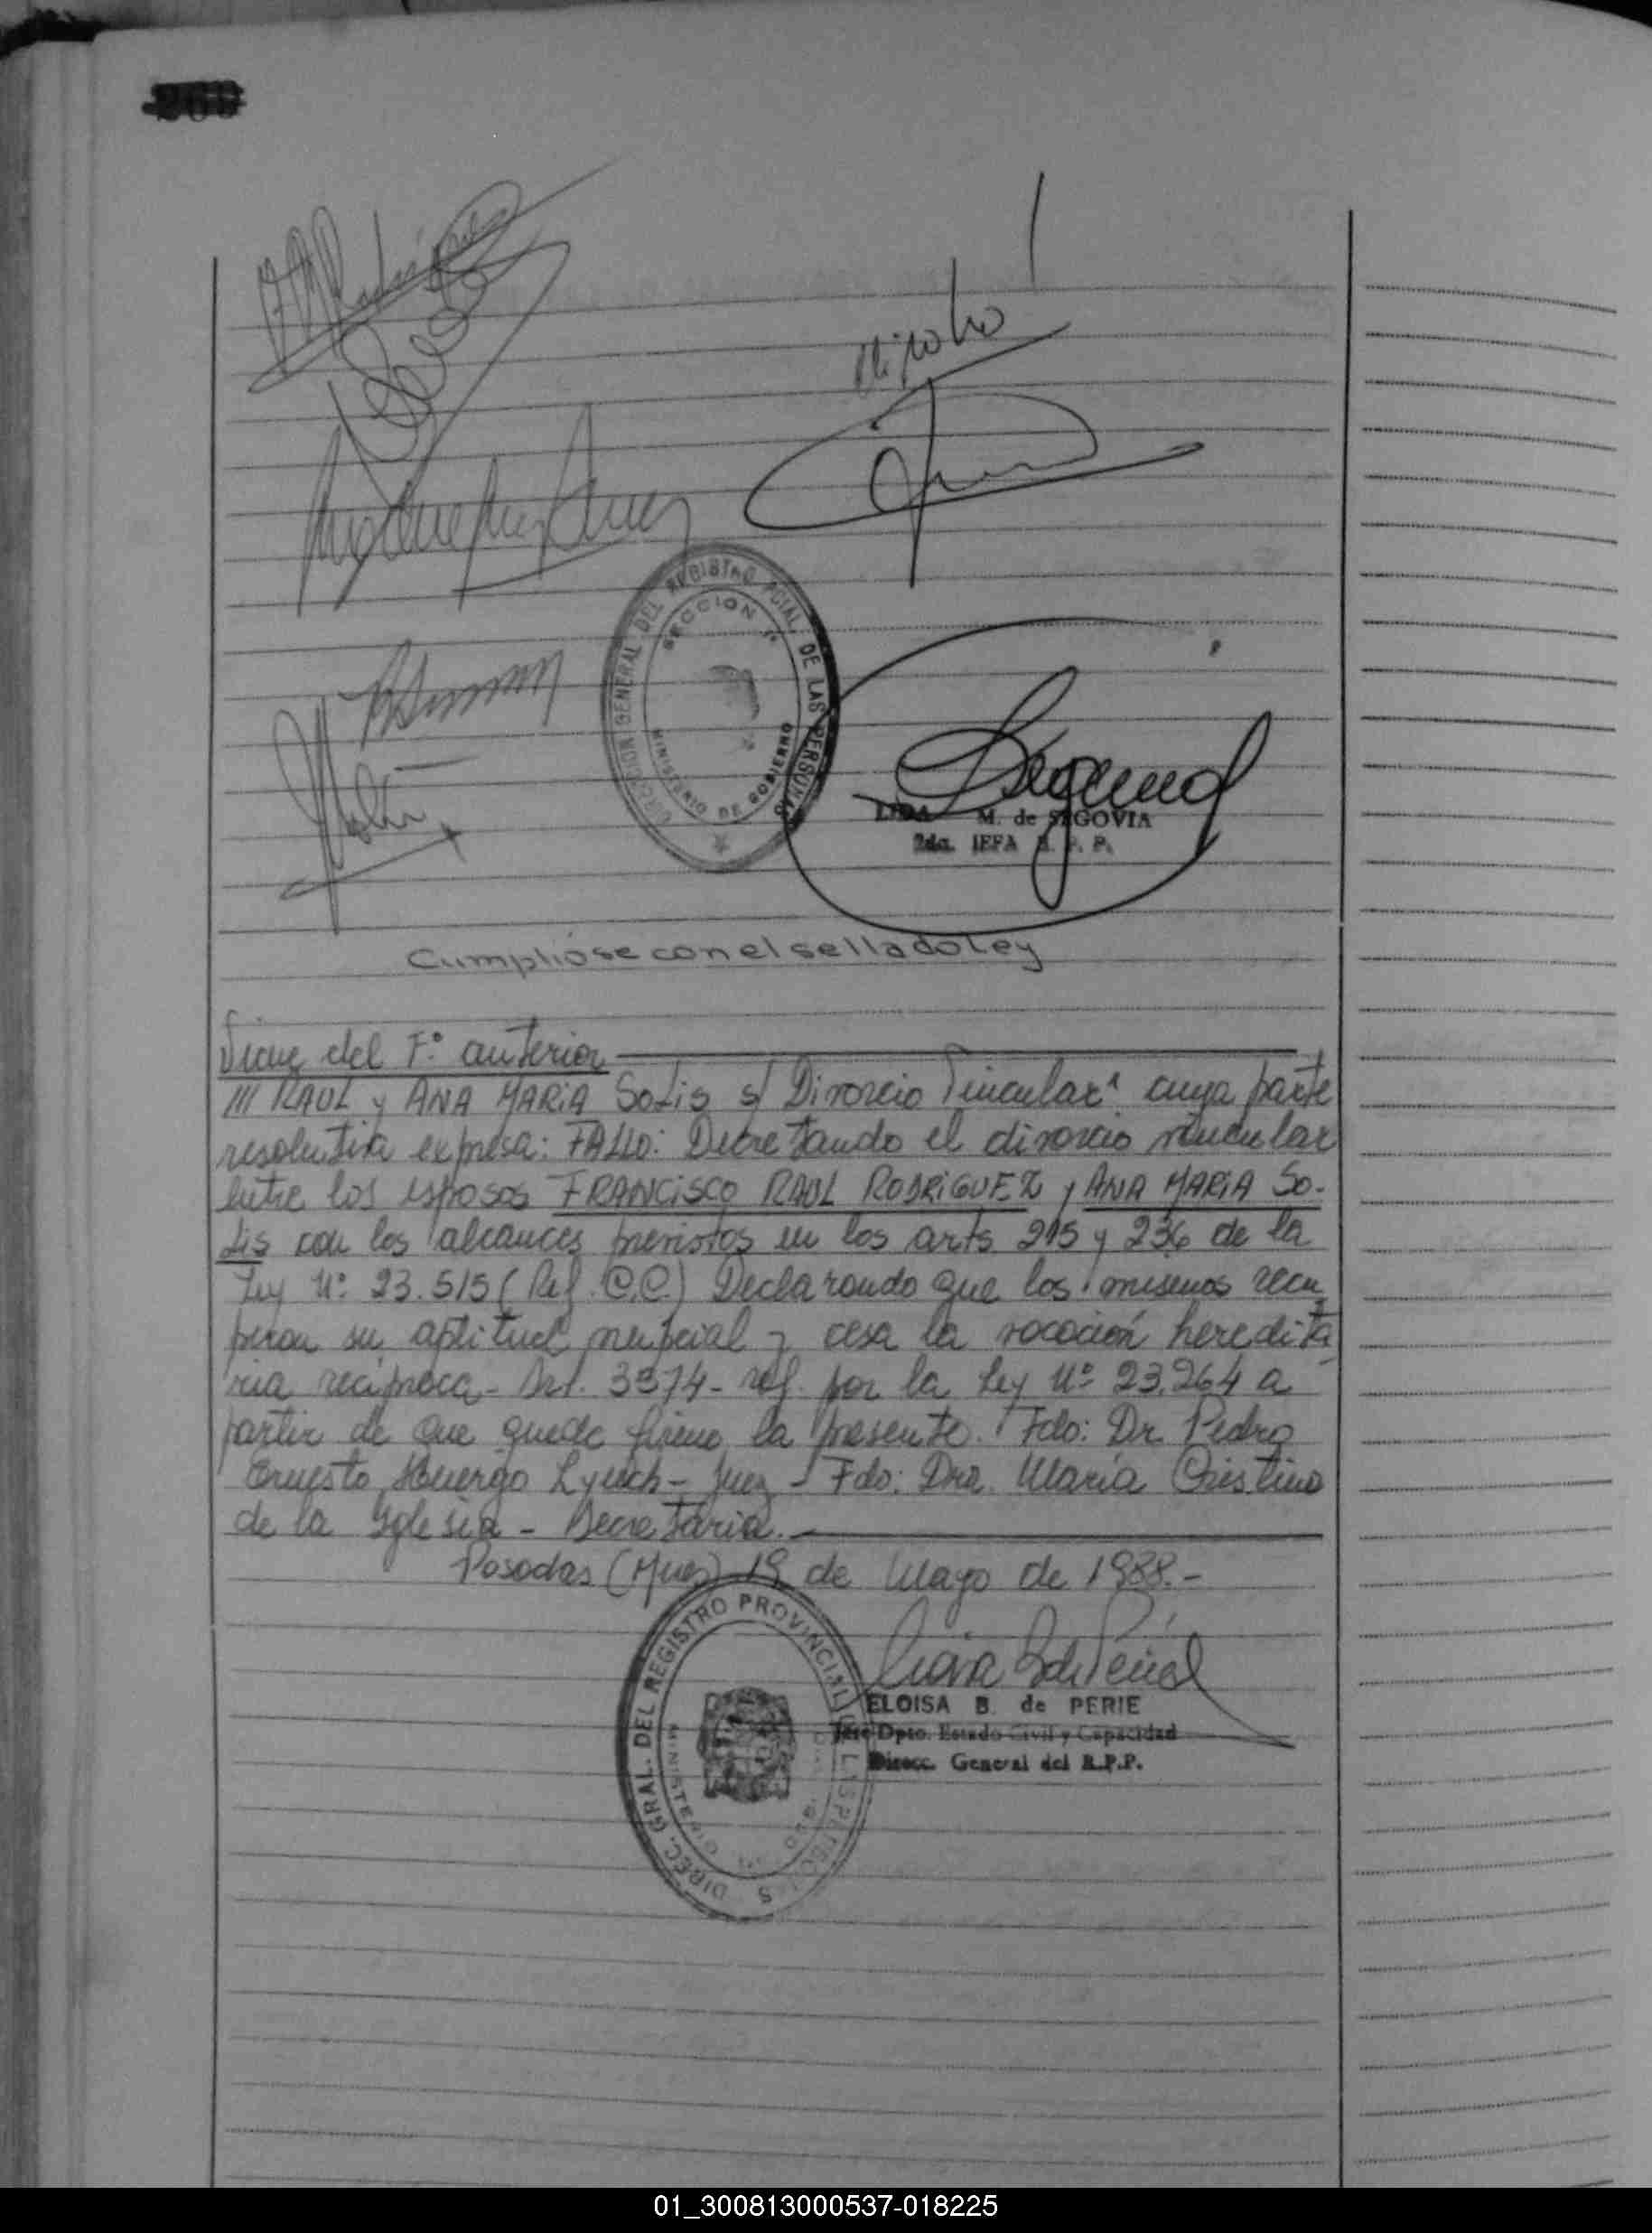 DIRECCION GENERAL DEL REGISTRO PCIAL. DE LAS PERSONAS
SECCION 1ª
MINISTERIO DE GOBIERNO
M. de SEGOVIA
2da. JEFA R. P. P.
Cumplióse con el sellado Ley
Sigue del Fº anterior
/// RAUL y ANA MARIA SOLIS s/ Divorcio Vincular" cuya parte
resolutiva expresa: FALLO: Decretando el divorcio vincular
entre los esposos FRANCISCO RAUL RODRIGUEZ y ANA MARIA SO-
LIS con los alcances previstos en los arts 215 y 236 de la
Ley Nº 23.515 (Ref. C.C.) Declarando que los mismos recu
peran su aptitud nupcial y cesa la vocación heredita
ria recíproca - Art. 3574 - ref. por la Ley Nº 23.264 a
partir de que quede firme la presente. Fdo: Dr. Pedro
Ernesto Huergo Lynch - Juez - Fdo: Dra. María Cristina
de la Iglesia - Secretaria.
Posadas (Mnes) 19 de Mayo de 1988.-
DIREC. GRAL. DEL REGISTRO PROVINCIAL
ELOISA B. de PERIE
Jefe Dpto. Estado Civil y Capacidad
Direcc. General del R.P.P.
01_300813000537-018225